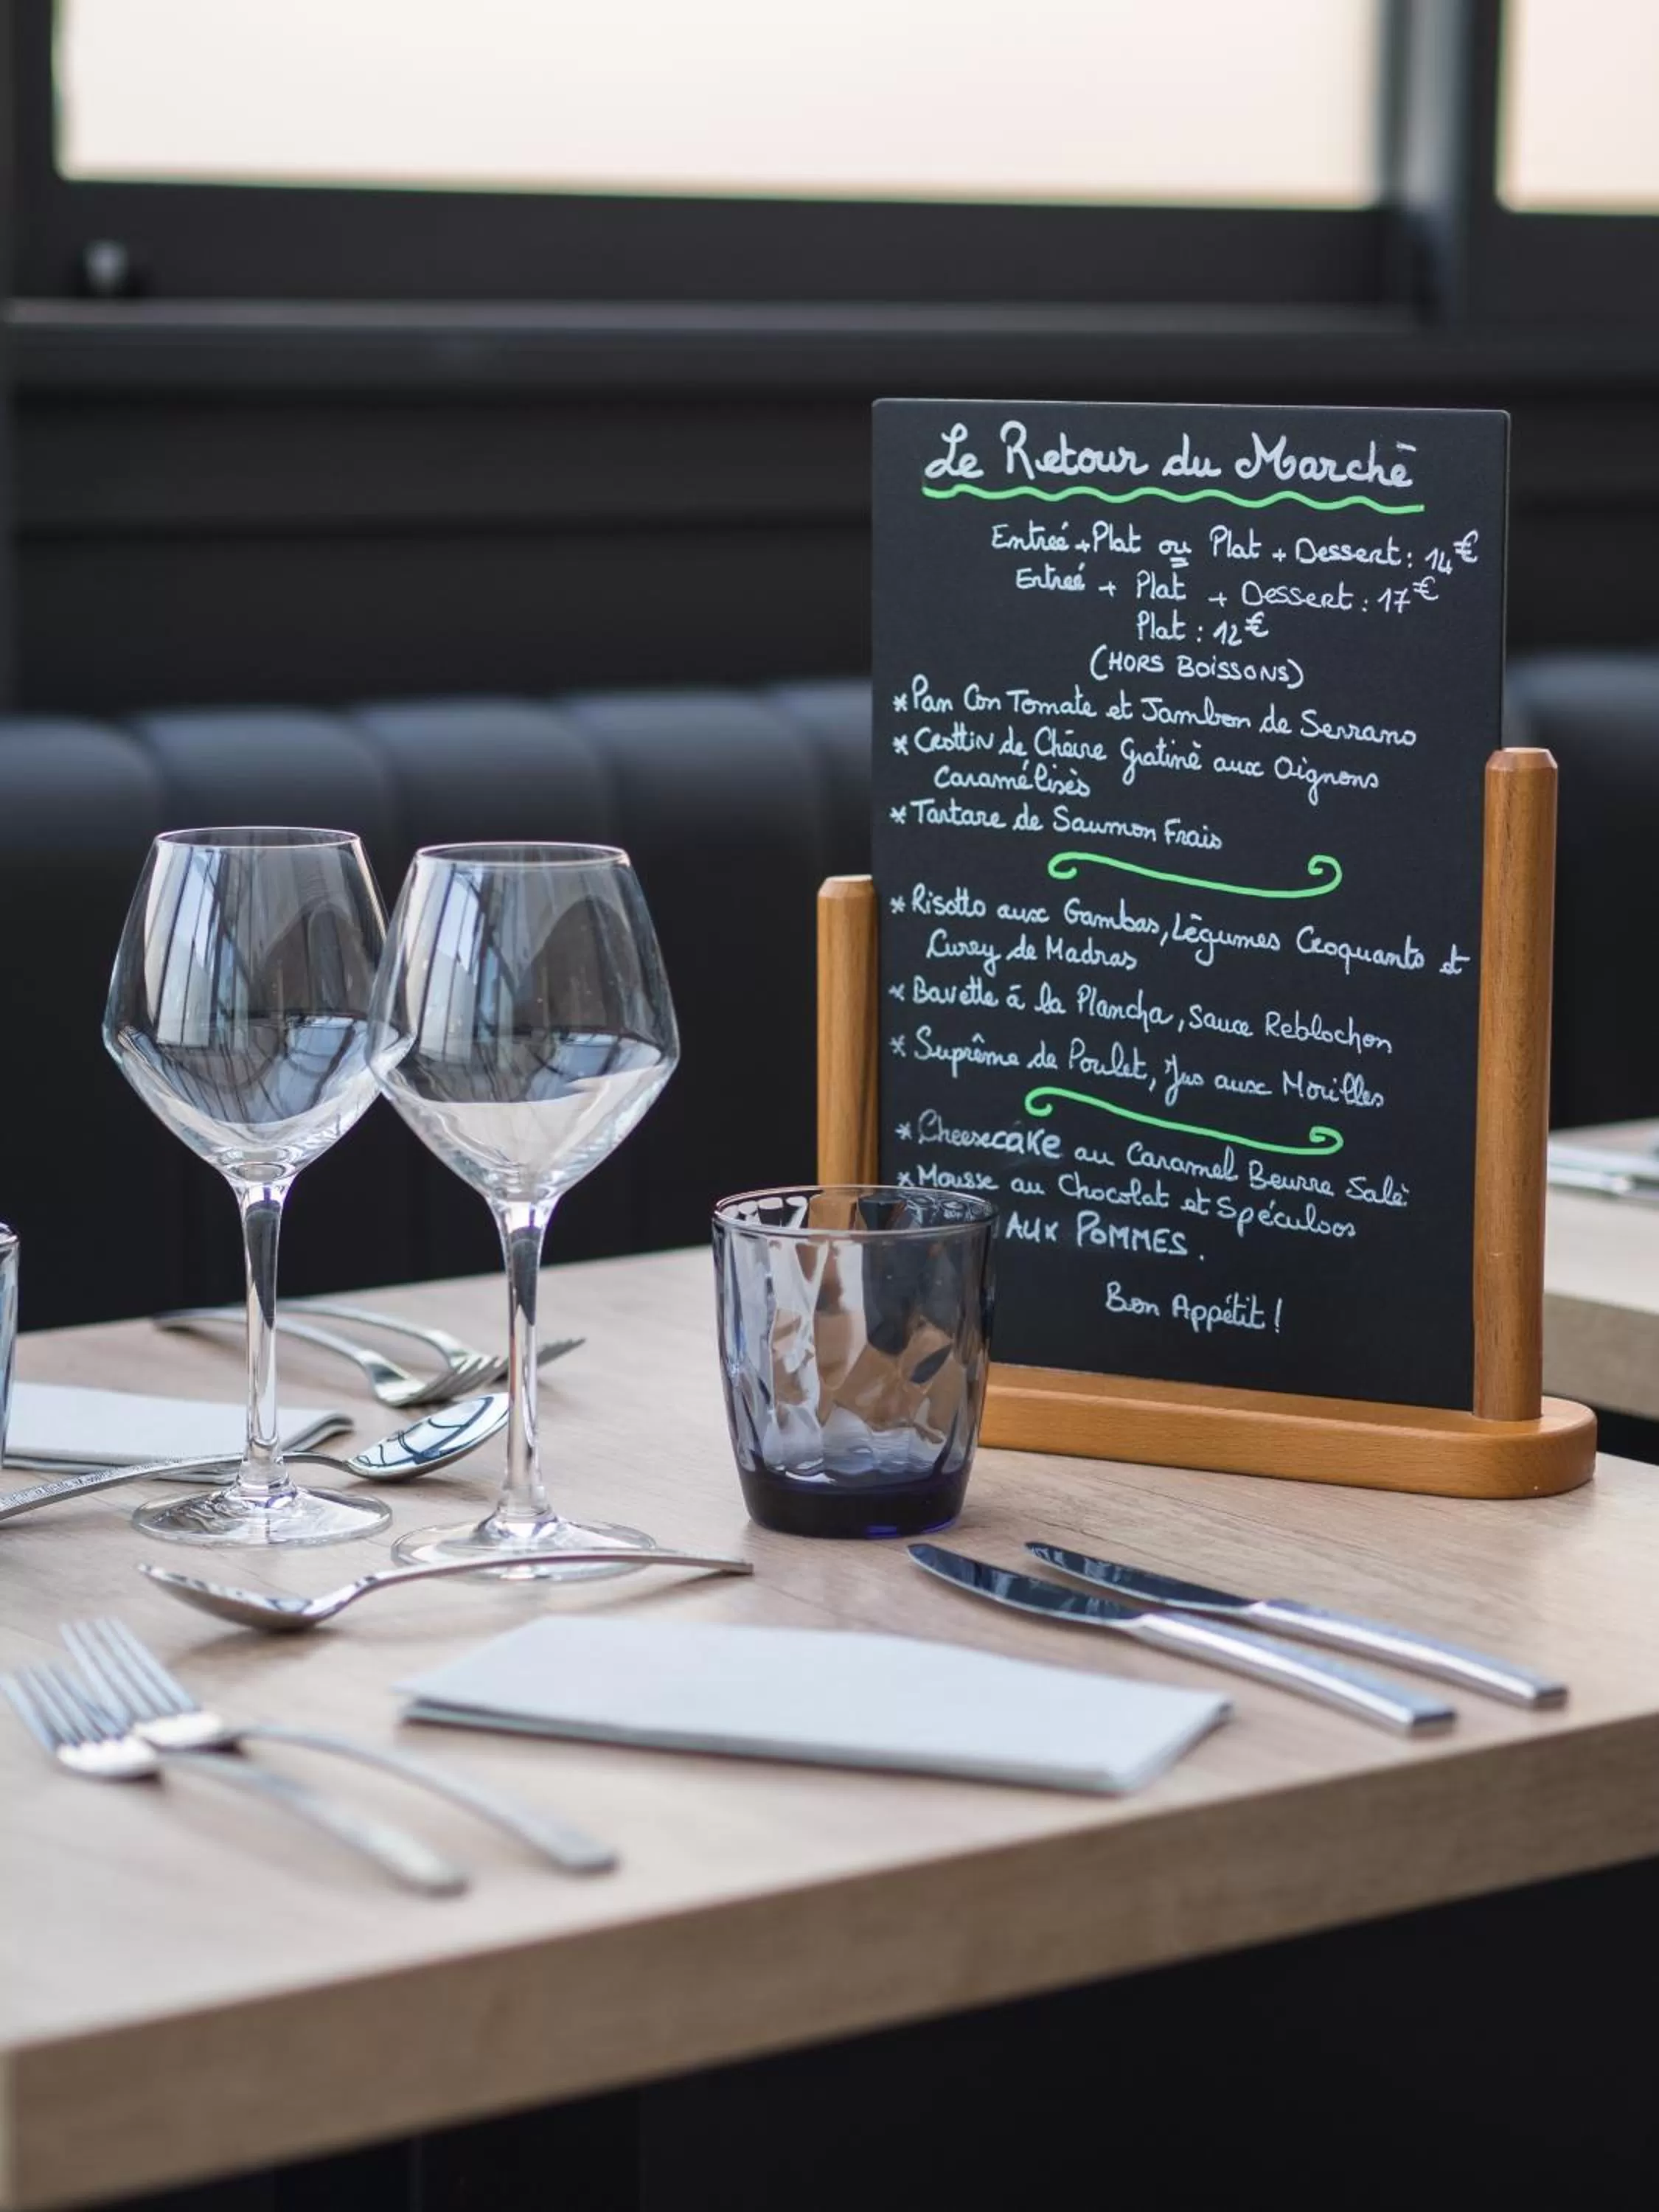 Le Retour du Marché
Entreé + Plat ou Plat + Dessert : 14€
Entreé + Plat + Dessert : 17€
Plat : 12€
(HORS BOISSONS)
* Pan Con Tomate et Jambon de Serrano
* Crottin de Chèvre Gratiné aux Oignons
Caramélisés
* Tartare de Saumon Frais
* Risotto aux Gambas, Légumes Croquants et
Curry de Madras
* Bavette à la Plancha, Sauce Reblochon
* Suprême de Poulet, Jus aux Morilles
* Cheesecake au Caramel Beurre Salé
* Mousse au Chocolat et Spéculoos
AUX POMMES.
Bon Appétit !